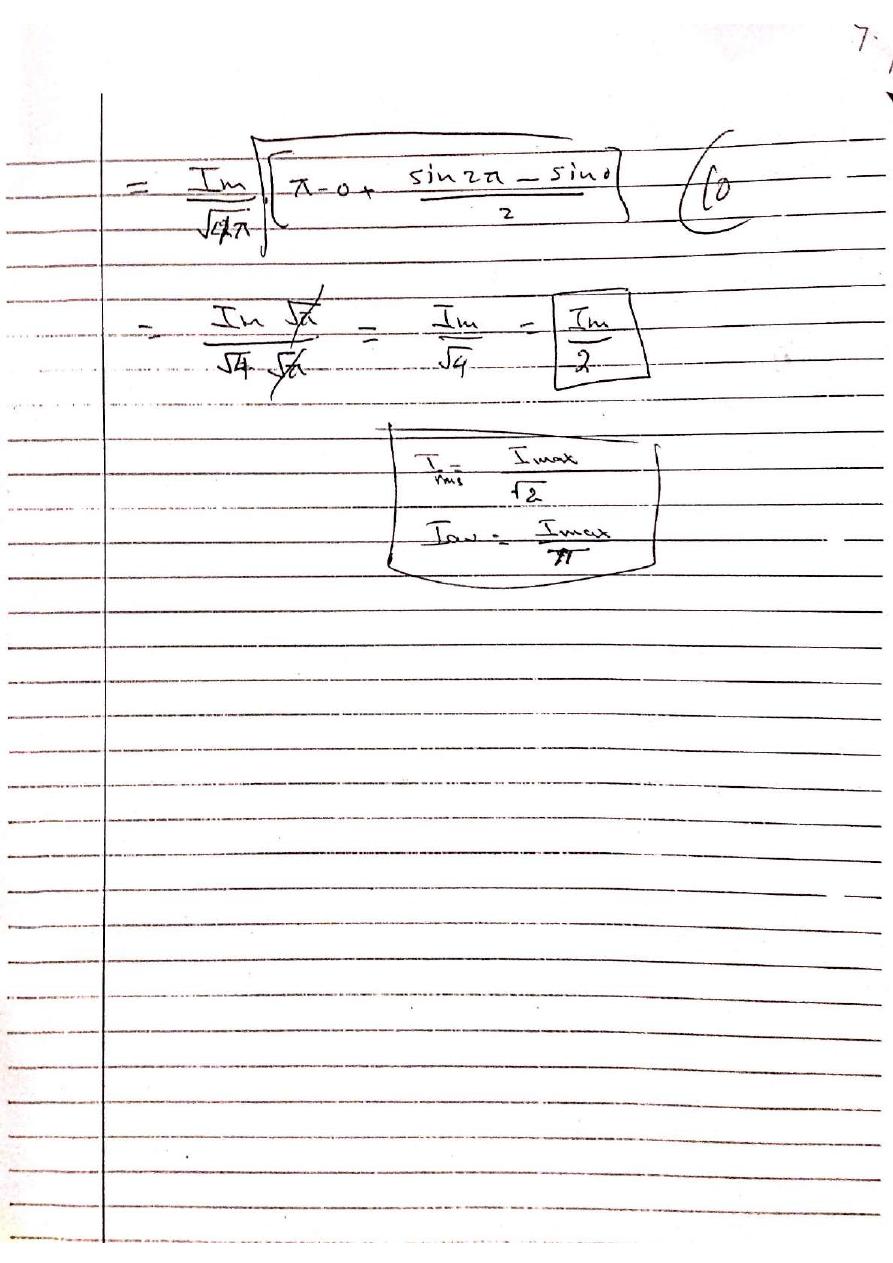 7.
= Im/√4π √[π-0+ (sin2π - sin0)/2] (10
= Im √π / √4 √π = Im/√4 = Im/2
Irms = Imax/√2
Iav = Imax/π